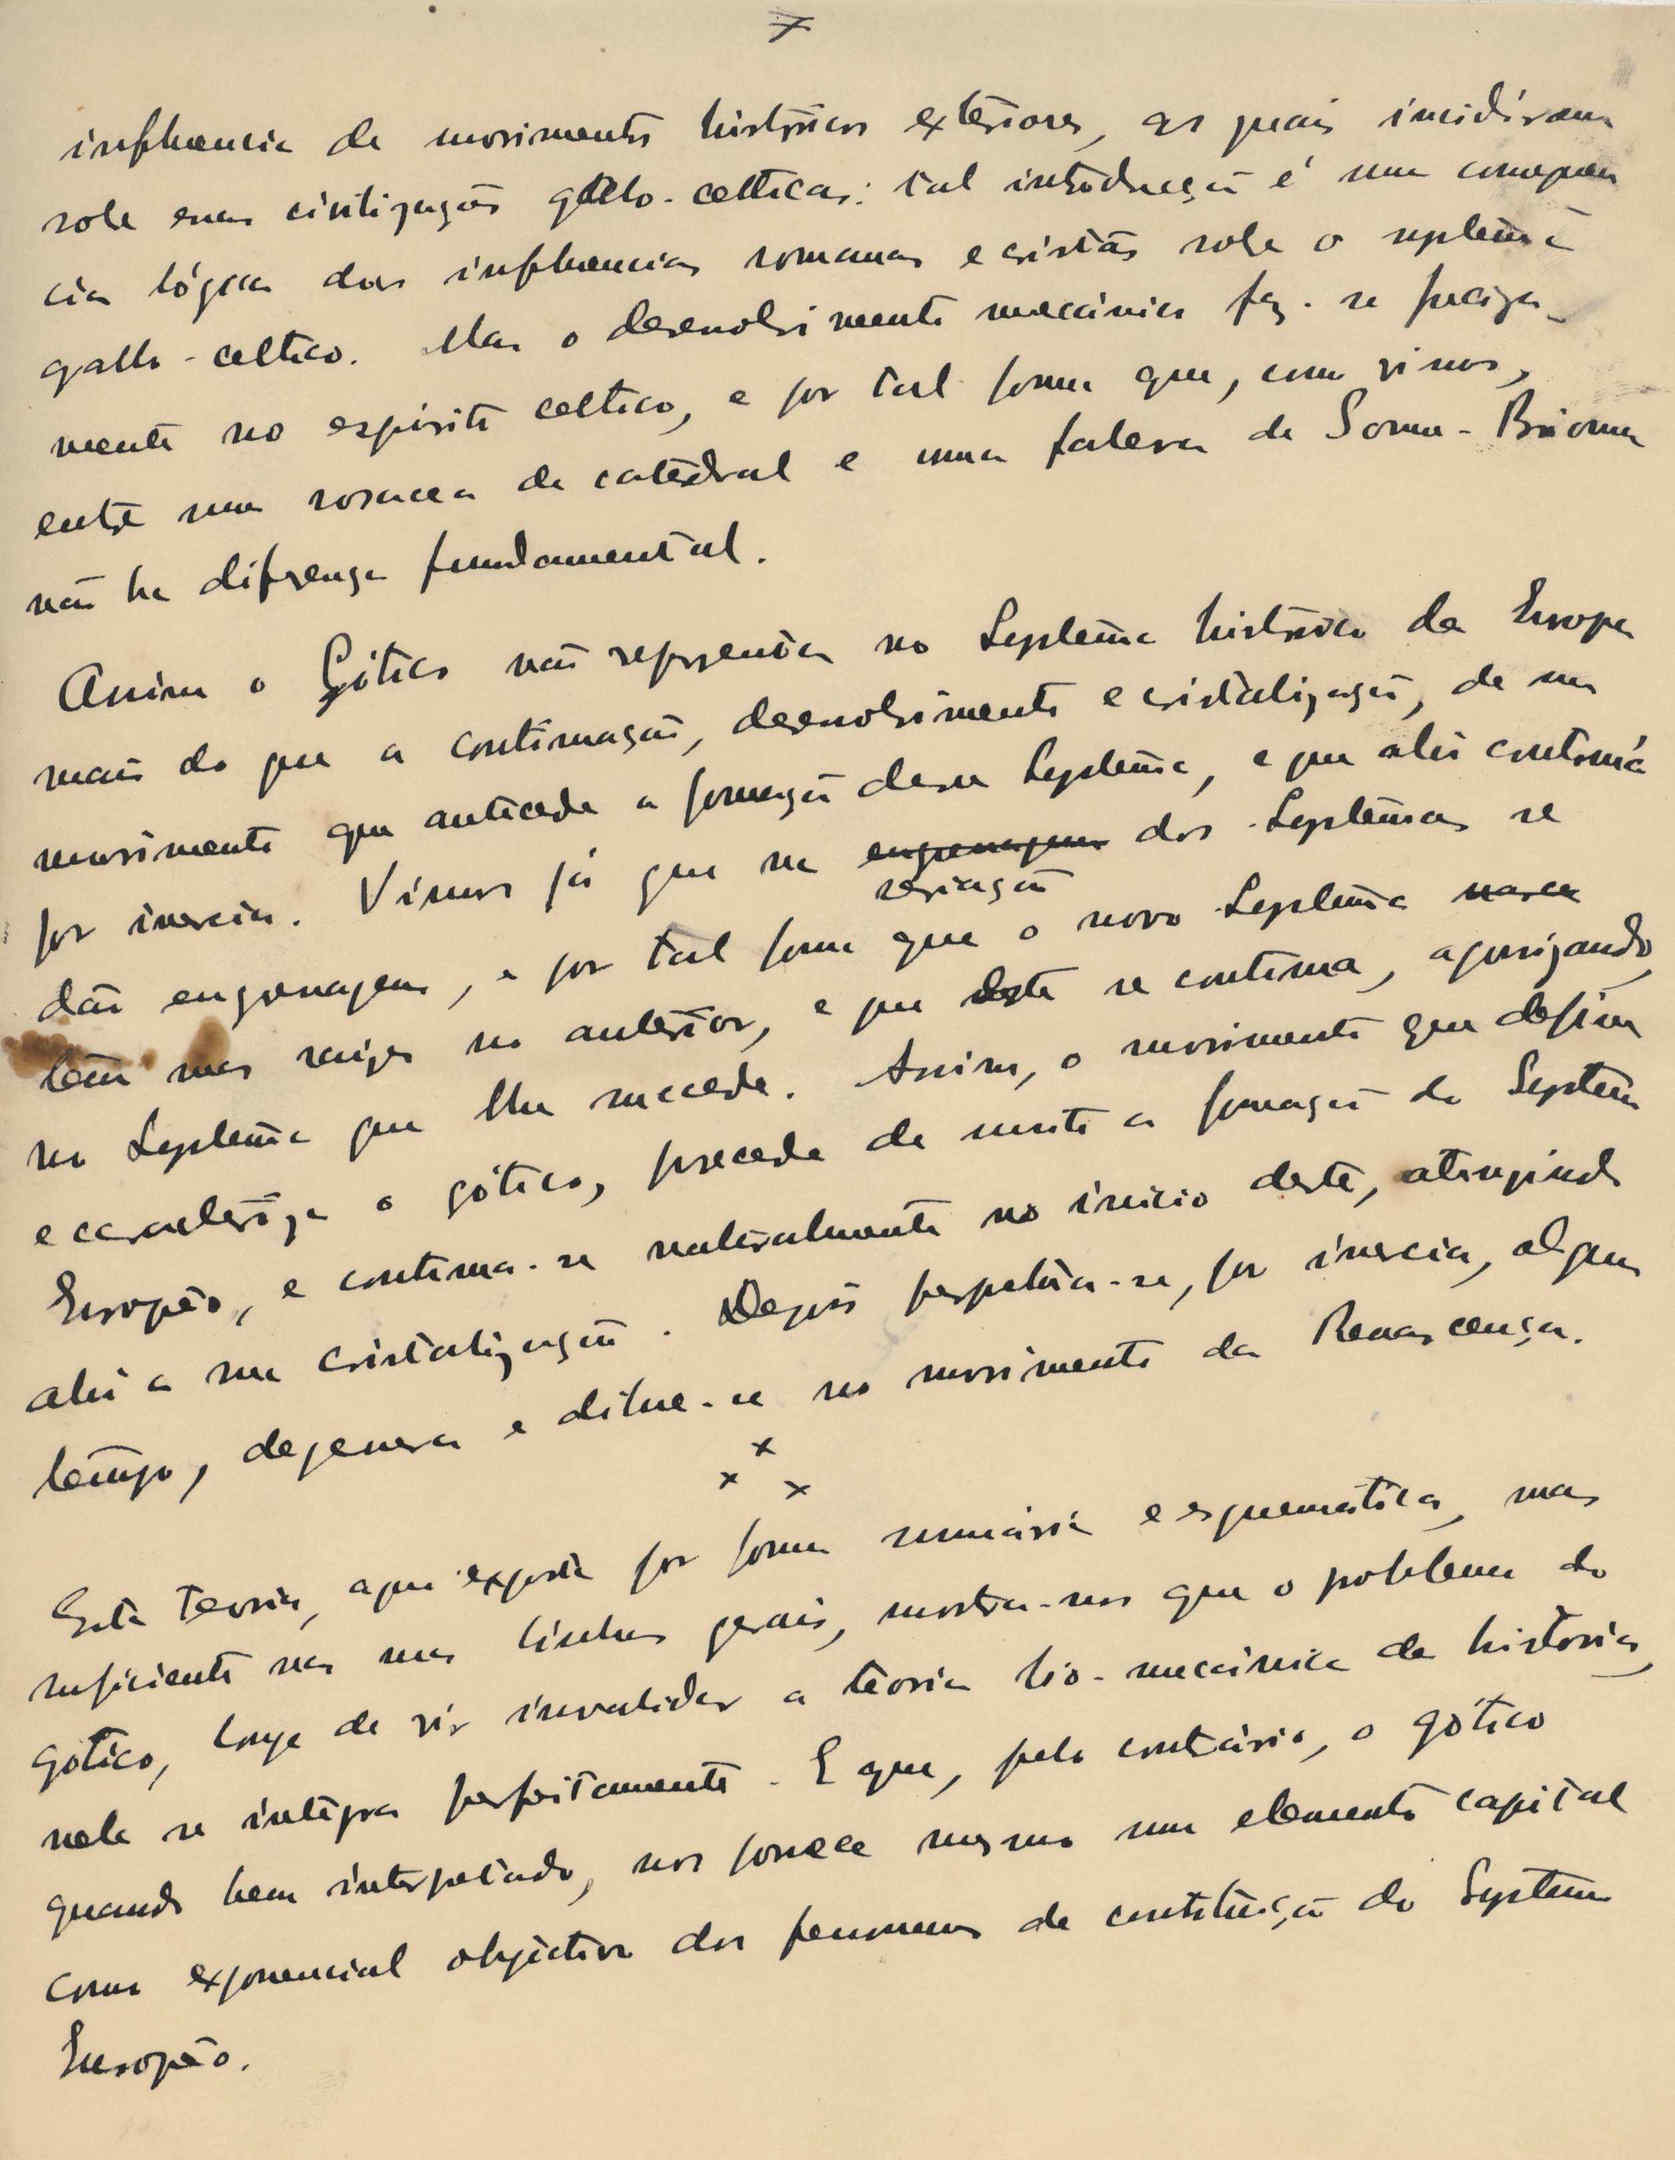 7
influencia de movimentos históricos exteriores, os quais incidiram
sobre essas civilizações gallo-celticas: tal introducção é uma consequen
cia lógica das influencias romanas e cristãs sobre o systema
gallo-celtico. Mas o desenvolvimento mecánico fez-se precisa-
mente no espirito celtico, e por tal forma que, como vimos,
entre uma rosacea de catedral e uma falera de Somme-Brionne
não ha diferença fundamental.
Assim o Gótico não representa no Systema histórico da Europa
mais do que a continuação, desenvolvimento e cristalização, de um
movimento que antecede a formação desse Systema, e que alli continúa
por inercia. Vimos já que na engrenagem dos Systemas se
seriação
dão engrenagens, e por tal forma que o novo Systema nasce
tem suas raizes no anterior, e que este se continua, agonizando,
no Systema que lhe succede. Assim, o movimento que define
e caracteriza o gótico, precede de muito a formação do Systema
Europêo, e continua-se naturalmente no inicio deste, atingindo
alli a sua cristalização. Depois perpetúa-se, por inercia, algum
tempo, degenera e dilue-se no movimento da Renascença.
x
x x
Esta teoria, aqui exposta por forma sumária e esquemática, mas
suficiente nas suas linhas gerais, mostra-nos que o problema do
gótico, longe de vir invalidar a teoria bio-mecánica da história,
nela se integra perfeitamente. E que, pelo contrário, o gótico
quando bem interpretado, nos fornece mesmo um elemento capital
como exponencial objectivo dos fenomenos de constituição do Systema
Europêo.